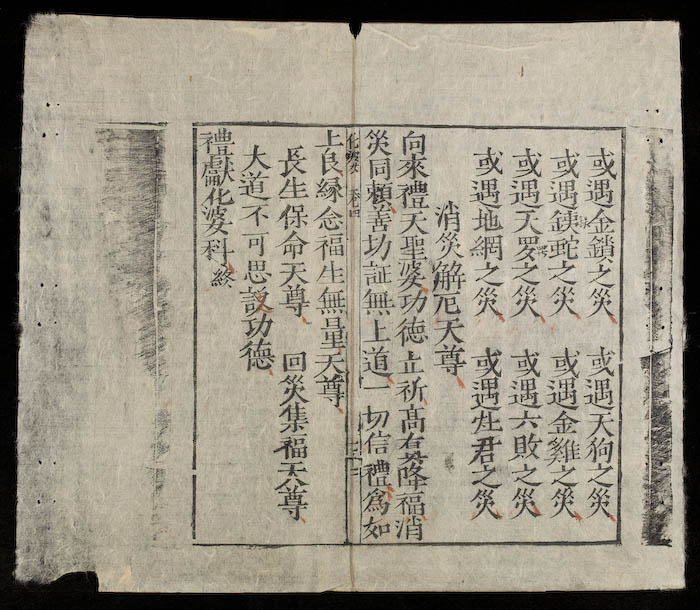 或遇金鎖之災　或遇天狗之災
或遇鉄蛇之災　或遇金雞之災
或遇天罗之災　或遇六敗之災
或遇地網之災　或遇灶君之災
消災觧厄天尊
向來禮天聖婆功德上祈高真降福消
災同賴善功証無上道一切信禮為如
上良緣念福生無量天尊
長生保命天尊　回災集福天尊
大道不可思議功德
禮獻化婆科終